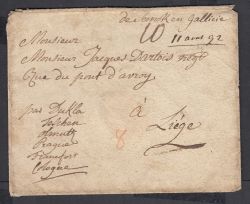 de Krosno en Gallicie
10
11 avril 92
Monsieur
Monsieur Jacques Dartois negt
Quai du pont d'avroy
à
Liége
par Dukla
Teschen
olmutz
Prague
Francfort
Cologne
8